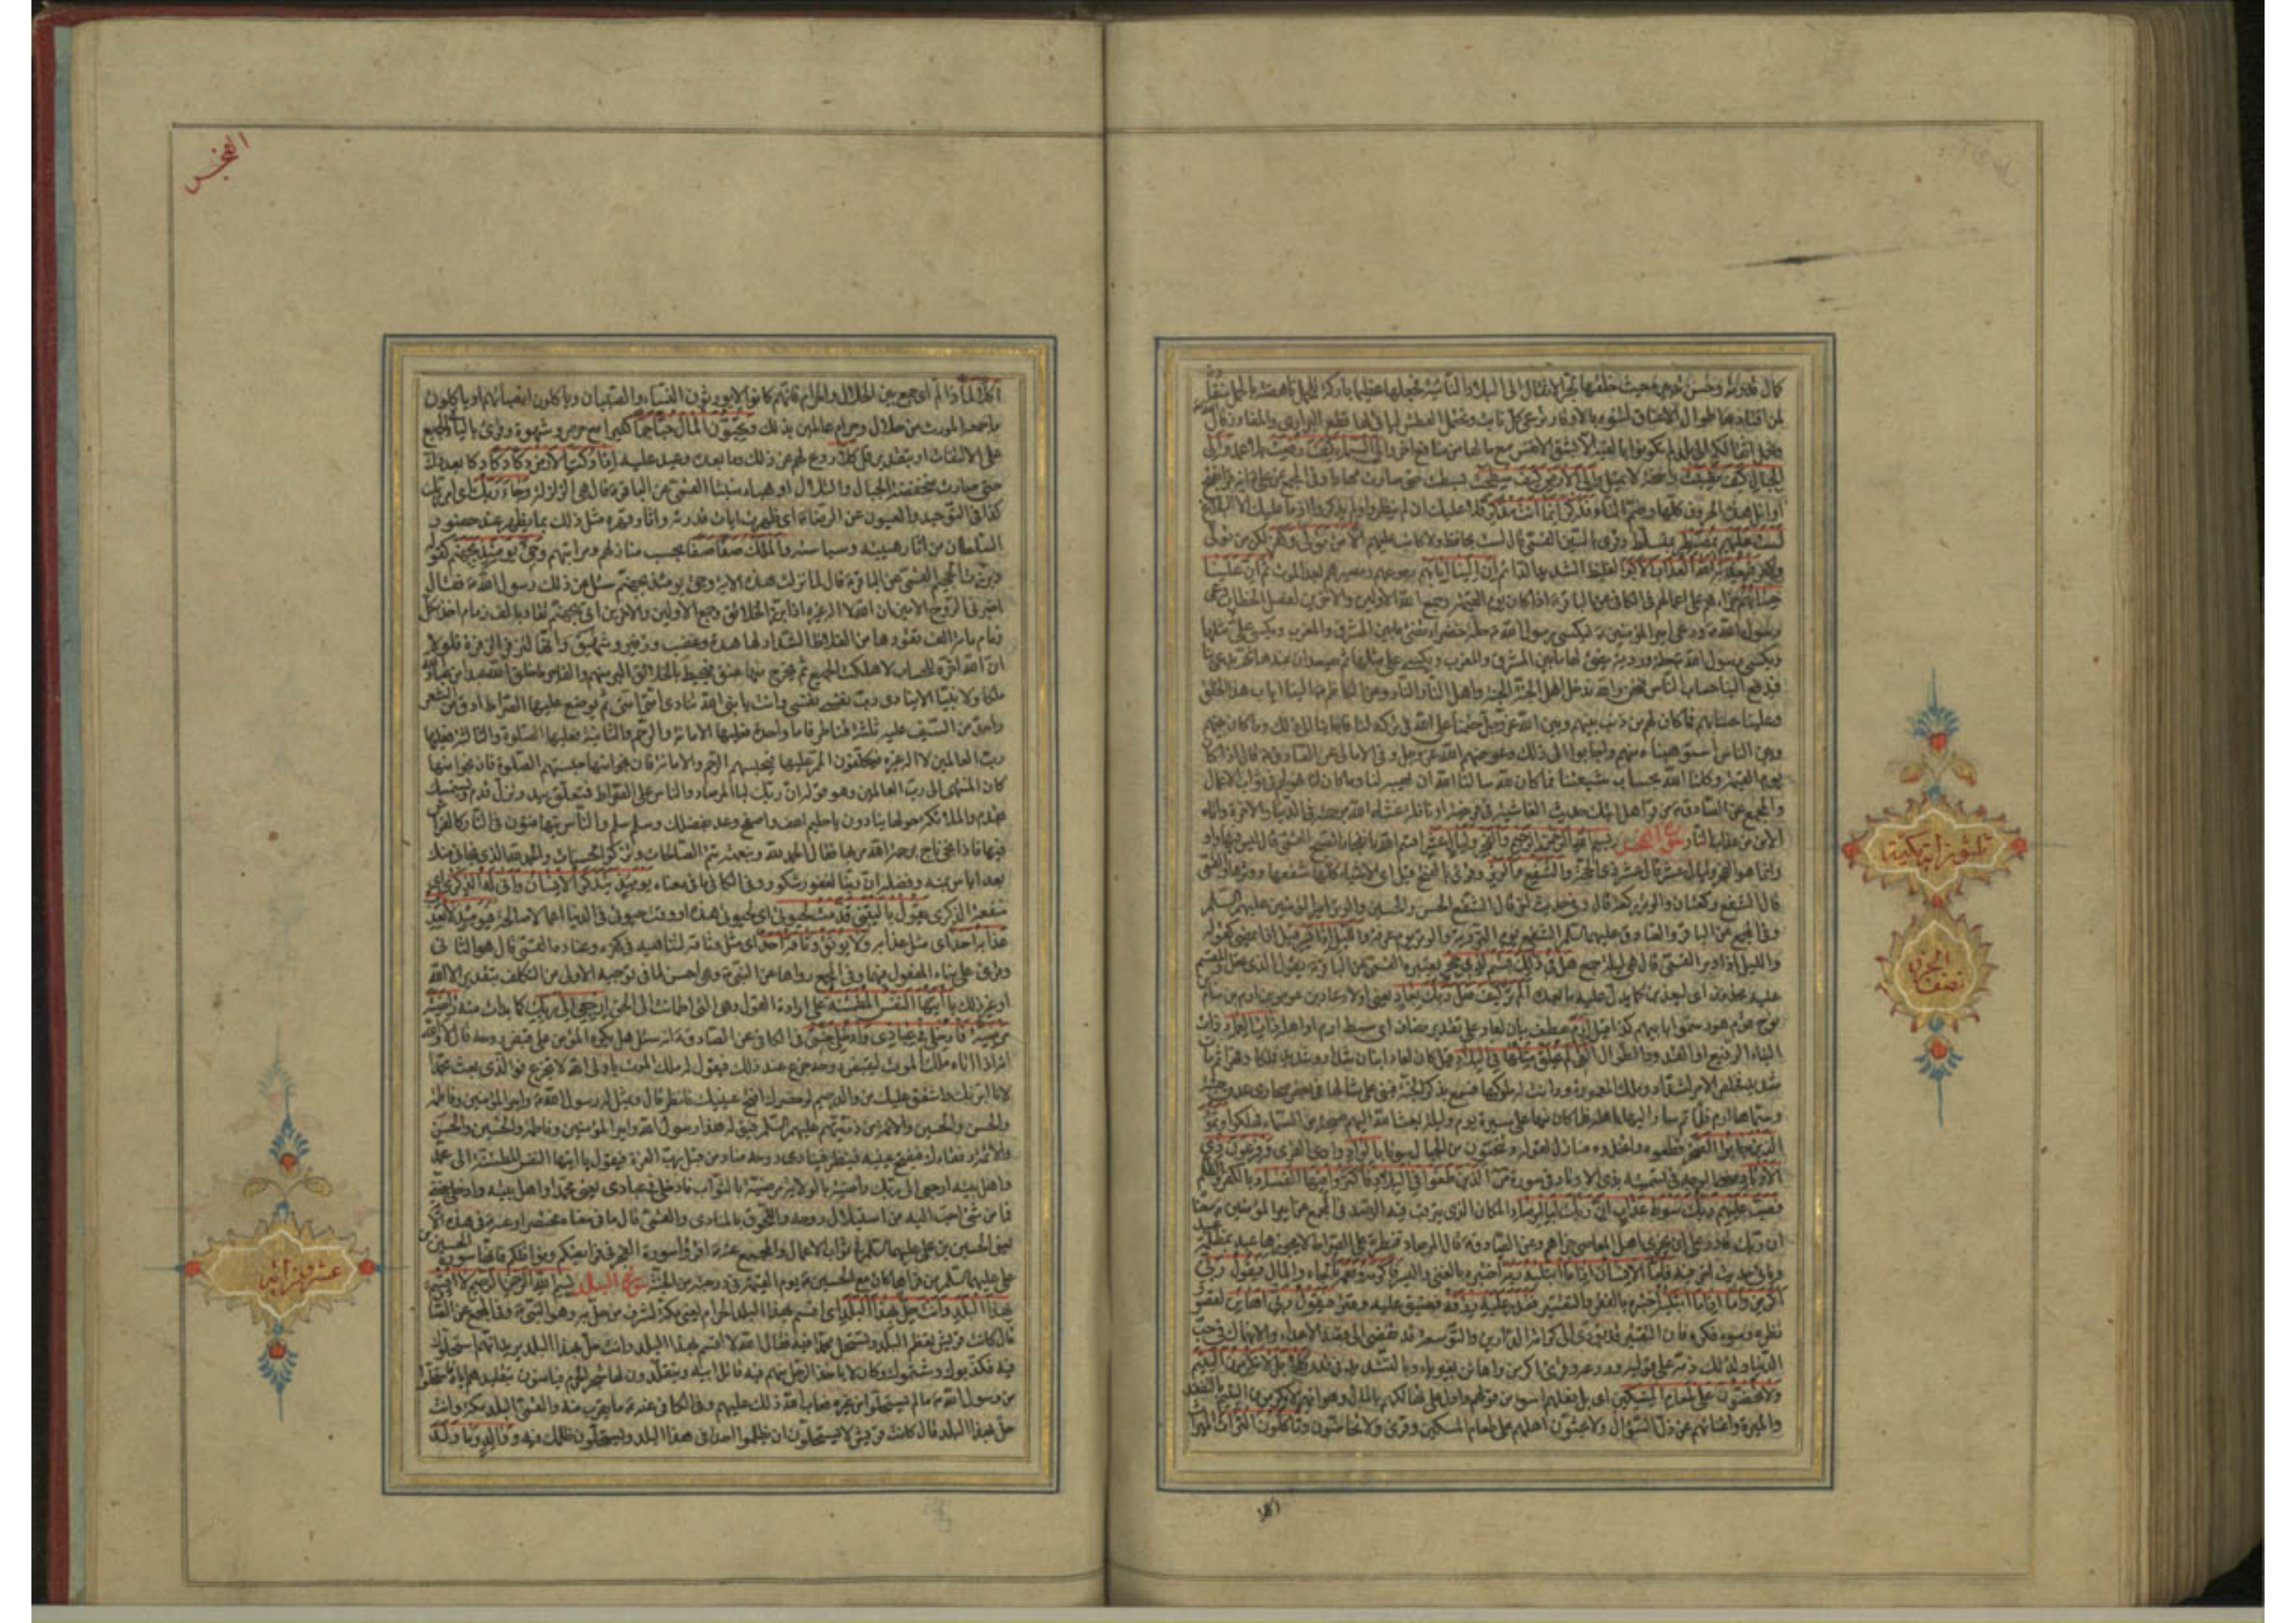 كمال قدرته وحسن تدبيره حيث خلقها لجر الاثقال الى البلاد النائية فجعلها عظيمة باركة للحمل ناهضة بالحمل منقادة
لمن اقتادها طوال الاعناق لتنوء بالاوقار ترعى كل نابت وتحتمل العطش ليتأتى لها قطع البراري والمفاوز
مع ما لها من منافع اخر والى السماء كيف رفعت بلا عمد والى
الجبال كيف نصبت راسخة لا تميل والى الارض كيف سطحت بسطت حتى صارت مهادا وفي المجمع عن علي
اوائل هذه الحروف كلها وضم التاء فذكر انما انت مذكر فلا عليك ان لم ينظروا ولم يذكروا اذ ما عليك الا البلاغ
لست عليهم بمصيطر بمتسلط وقرئ بالسين القمي قال لست بحافظ ولا كاتب عليهم الا من تولى وكفر لكن من تولى
وكفر فيعذبه الله العذاب الاكبر الغليظ الشديد الدائم ان الينا ايابهم رجوعهم ومصيرهم بعد الموت ثم ان علينا
حسابهم جزاءهم على اعمالهم في الكافي عن الباقر ع اذا كان يوم القيمة وجمع الله الاولين والاخرين لفصل الخطاب دعي
رسول الله ص ودعي امير المؤمنين ع فيكسى رسول الله ص حلة خضراء تضئ ما بين المشرق والمغرب ويكسى علي مثلها
ويكسى رسول الله ص حلة وردية يضئ لها ما بين المشرق والمغرب ويكسى علي مثلها ثم يصعدان عندها ثم يدعى بنا
فيدفع الينا حساب الناس فنحن والله ندخل اهل الجنة الجنة واهل النار النار وعن الكاظم ع الينا اياب هذا الخلق
وعلينا حسابهم فما كان لهم من ذنب بينهم وبين الله عز وجل حتمنا على الله في تركه لنا فاجابنا الى ذلك وما كان بينهم
وبين الناس استوهبناه منهم واجابوا الى ذلك وعوضهم الله عز وجل وفي الامالي عن الصادق ع قال اذا كان
يوم القيمة وكلنا الله بحساب شيعتنا فما كان لله سالنا الله ان يهبه لنا وما كان لنا فهو لهم في ثواب الاعمال
والمجمع عن الصادق ع من قرأ هل اتيك حديث الغاشية في فريضة او نافلة غشاه الله برحمته في الدنيا والاخرة واتاه
الامن من عذاب النار سورة الفجر بسم الله الرحمن الرحيم والفجر وليال عشر
قال الشفع ركعتان والوتر ركعة قال وفي حديث اخر قال الشفع الحسن والحسين والوتر امير المؤمنين عليهم السلم
وفي المجمع عن الباقر والصادق عليهما السلم الشفع يوم التروية والوتر يوم عرفة والليل اذا يسر
والليل اذا ادبر القمي قال هي ليلة جمع هل في ذلك قسم لذي حجر يعتبره القمي عن الباقر ع يقول لذي عقل
الم تر كيف فعل ربك بعاد يعني اولاد عاد بن عوص بن ارم بن سام
بن نوح قوم هود سموا باسم ابيهم ارم عطف بيان لعاد على تقدير مضاف اي سبط ارم او اهل ارم ذات العماد ذات
البناء الرفيع التي لم يخلق مثلها في البلاد قيل كان لعاد ابنان شداد وشديد فملكا وقهرا ثم مات
شديد فخلص الامر لشداد وملك المعمورة ودانت له ملوكها فسمع بذكر الجنة فبنى على مثالها في بعض صحاري عدن جنة
وسماها ارم فلما تم سار اليها باهله فلما كان منها على مسيرة يوم وليلة بعث الله عليهم صيحة من السماء فهلكوا وثمود
الذين جابوا الصخر قطعوه واتخذوه منازل لقوله وتنحتون من الجبال بيوتا بالواد وادي القرى وفرعون ذي
الاوتاد الذين طغوا في البلاد فاكثروا فيها الفساد بالكفر والظلم
فصب عليهم ربك سوط عذاب ان ربك لبالمرصاد المكان الذي يترقب فيه الرصد في المجمع عن امير المؤمنين ع معناه
ان ربك قادر على ان يجزي اهل المعاصي جزاءهم وعن الصادق ع قال المرصاد قنطرة على الصراط لا يجوزها عبد بمظلمة
عبد فاما الانسان اذا ما ابتليه ربه اختبره بالغنى واليسر فاكرمه ونعمه بالجاه والمال فيقول ربي
اكرمن واما اذا ما ابتليه اختبره بالفقر والتقتير فقدر عليه رزقه فضيق عليه وقتر فيقول ربي اهانن لقصور
نظره وسوء فكره فان التقتير قد يؤدي الى كرامة الدارين والتوسعة قد تفضي الى قصد الاعداء والانهماك في حب
الدنيا ولذلك ذمه على قوليه وردعه وقرئ اكرمن واهانن بغير ياء وبالتشديد في قدر كلا بل لا تكرمون اليتيم
ولا تحضون على طعام المسكين اي بل فعلهم اسوء من قولهم وادل على تهالكهم بالمال وهو انهم لا يكرمون اليتيم بالنفقة
والمبرة واغنائهم عن ذل السؤال ولا يحثون اهلهم على طعام المسكين وقرئ ولا تحاضون وتأكلون التراث الميراث
اكلا
ثلثون آية مكية
نصف الحزب
الفجر
اكلا لما ذا لم اي جمع بين الحلال والحرام فانهم كانوا لا يورثون النساء والصبيان وياكلون انصباءهم او ياكلون
ما جمعه المورث من حلال وحرام عالمين بذلك وتحبون المال حبا جما كثيرا مع حرص وشهوة وقرئ بالياء في الجميع
على الالتفات او بتقدير قل كلا ردع لهم عن ذلك وما بعده وعيد عليه اذا دكت الارض دكا دكا دكا بعد دك
حتى صارت منخفضة الجبال والتلال او هباء منبثا القمي عن الباقر ع قال هي الزلزلة وجاء ربك اي امر ربك
كذا في التوحيد والعيون عن الرضا ع اي ظهرت ايات قدرته واثار قهره مثل ذلك بما يظهر عند حضور
السلطان من اثار هيبته وسياسته والملك صفا صفا بحسب منازلهم ومراتبهم وجئ يومئذ بجهنم كقوله
وبرزت الجحيم القمي عن الباقر ع قال لما نزلت هذه الاية وجئ يومئذ بجهنم سئل عن ذلك رسول الله ص فقال
اخبرني الروح الامين ان الله لا اله غيره اذا برز الخلائق وجمع الاولين والاخرين اتى بجهنم تقاد بالف زمام اخذ بكل
زمام مائة الف تقودها من الغلاظ الشداد لها هدة وغضب وزفير وشهيق وانها لتزفر الزفرة فلولا
ان الله اخرهم للحساب لاهلكت الجميع ثم يخرج منها عنق فيحيط بالخلائق البر منهم والفاجر ما خلق الله عبدا من عباد الله
ملكا ولا نبيا الا ينادي رب نفسي نفسي وانت يا نبي الله تنادي امتي امتي ثم يوضع عليها الصراط ادق من الشعر
واحد من السيف عليه ثلثة قناطر فاما واحدة فعليها الامانة والرحم والثانية فعليها الصلوة والثالثة فعليها
رب العالمين لا اله غيره فيكلفون الممر عليها فيحبسهم الرحم والامانة فان نجوا منها حبستهم الصلوة فان نجوا منها
كان المنتهى الى رب العالمين وهو قوله ان ربك لبالمرصاد والناس على الصراط فمتعلق بيد وتزل قدم ويستمسك
بقدم والملئكة حولها ينادون يا حليم اعف واصفح وعد بفضلك وسلم سلم والناس يتهافتون في النار كالفراش
فيها فاذا نجا ناج برحمة الله مر بها فقال الحمد لله وبنعمته تتم الصالحات وتزكو الحسنات والحمد لله الذي نجاني منك
بعد اياس بمنه وفضله ان ربنا لغفور شكور يومئذ يتذكر الانسان وانى له الذكرى اي
منفعة الذكرى يقول يا ليتني قدمت لحيوتي اي لحيوتي هذه او وقت حيوتي في الدنيا اعمالا صالحة فيومئذ لا يعذب
عذابه احد اي مثل عذابه ولا يوثق وثاقه احد اي مثل وثاقه لتناهيه في كفره وعناده القمي قال هو الثاني
وقرئ على بناء المفعول فيهما وفي المجمع رواها عن النبي ص
يا ايتها النفس المطمئنة على ارادة القول وهي التي اطمأنت الى الحق ارجعي الى ربك كما بدأت منه راضية
مرضية فادخلي في عبادي وادخلي جنتي في الكافي عن الصادق ع انه سئل هل يكره المؤمن على قبض روحه قال لا والله
انه اذا اتاه ملك الموت ليقبض روحه جزع عند ذلك فيقول له ملك الموت يا ولي الله لا تجزع فو الذي بعث محمدا
لانا ابر بك واشفق عليك من والد رحيم لو حضرك افتح عينيك فانظر قال ويمثل له رسول الله ص وامير المؤمنين وفاطمة
والحسن والحسين والائمة من ذريتهم عليهم السلم فيقال له هذا رسول الله وامير المؤمنين وفاطمة والحسن والحسين
والائمة رفقاؤك فيفتح عينيه فينظر فينادي روحه مناد من قبل رب العزة فيقول يا ايتها النفس المطمئنة الى محمد
واهل بيته ارجعي الى ربك راضية بالولاية مرضية بالثواب فادخلي في عبادي يعني محمدا واهل بيته وادخلي جنتي
فما من شئ احب اليه من استلال روحه واللحوق بالمنادي والقمي قال ما في معناه مختصرا
يعني الحسين بن علي عليهما السلم في ثواب الاعمال والمجمع عنه ع اقرؤا سورة الفجر في فرائضكم ونوافلكم فانها سورة الحسين بن
علي عليهما السلم من قرأها كان مع الحسين ع يوم القيمة في درجته من الجنة سورة البلد بسم الله الرحمن الرحيم لا اقسم
بهذا البلد وانت حل بهذا البلد اي اقسم بهذا البلد الحرام يعني مكة لشرف من حل به وهو النبي ص وفي المجمع عن الصادق
قال كانت قريش تعظم البلد وتستحل محمدا فيه فقال الله لا اقسم بهذا البلد وانت حل بهذا البلد يريد انهم استحلوك
فيه فكذبوك وشتموك وكان لا ياخذ الرجل منهم فيه قاتل ابيه ويتقلدون لحاء شجر الحرم فيامنون بتقليدهم اياه فاستحلوا
من رسول الله ص ما لم يستحلوا من غيره فعاب الله ذلك عليهم وفي الكافي عنه ع ما يقرب منه والقمي البلد مكة وانت
حل بهذا البلد قال كانت قريش لا يستحلون ان يظلموا احدا في هذا البلد ويستحلون ظلمك فيه ووالد وما ولد
عشرون آية